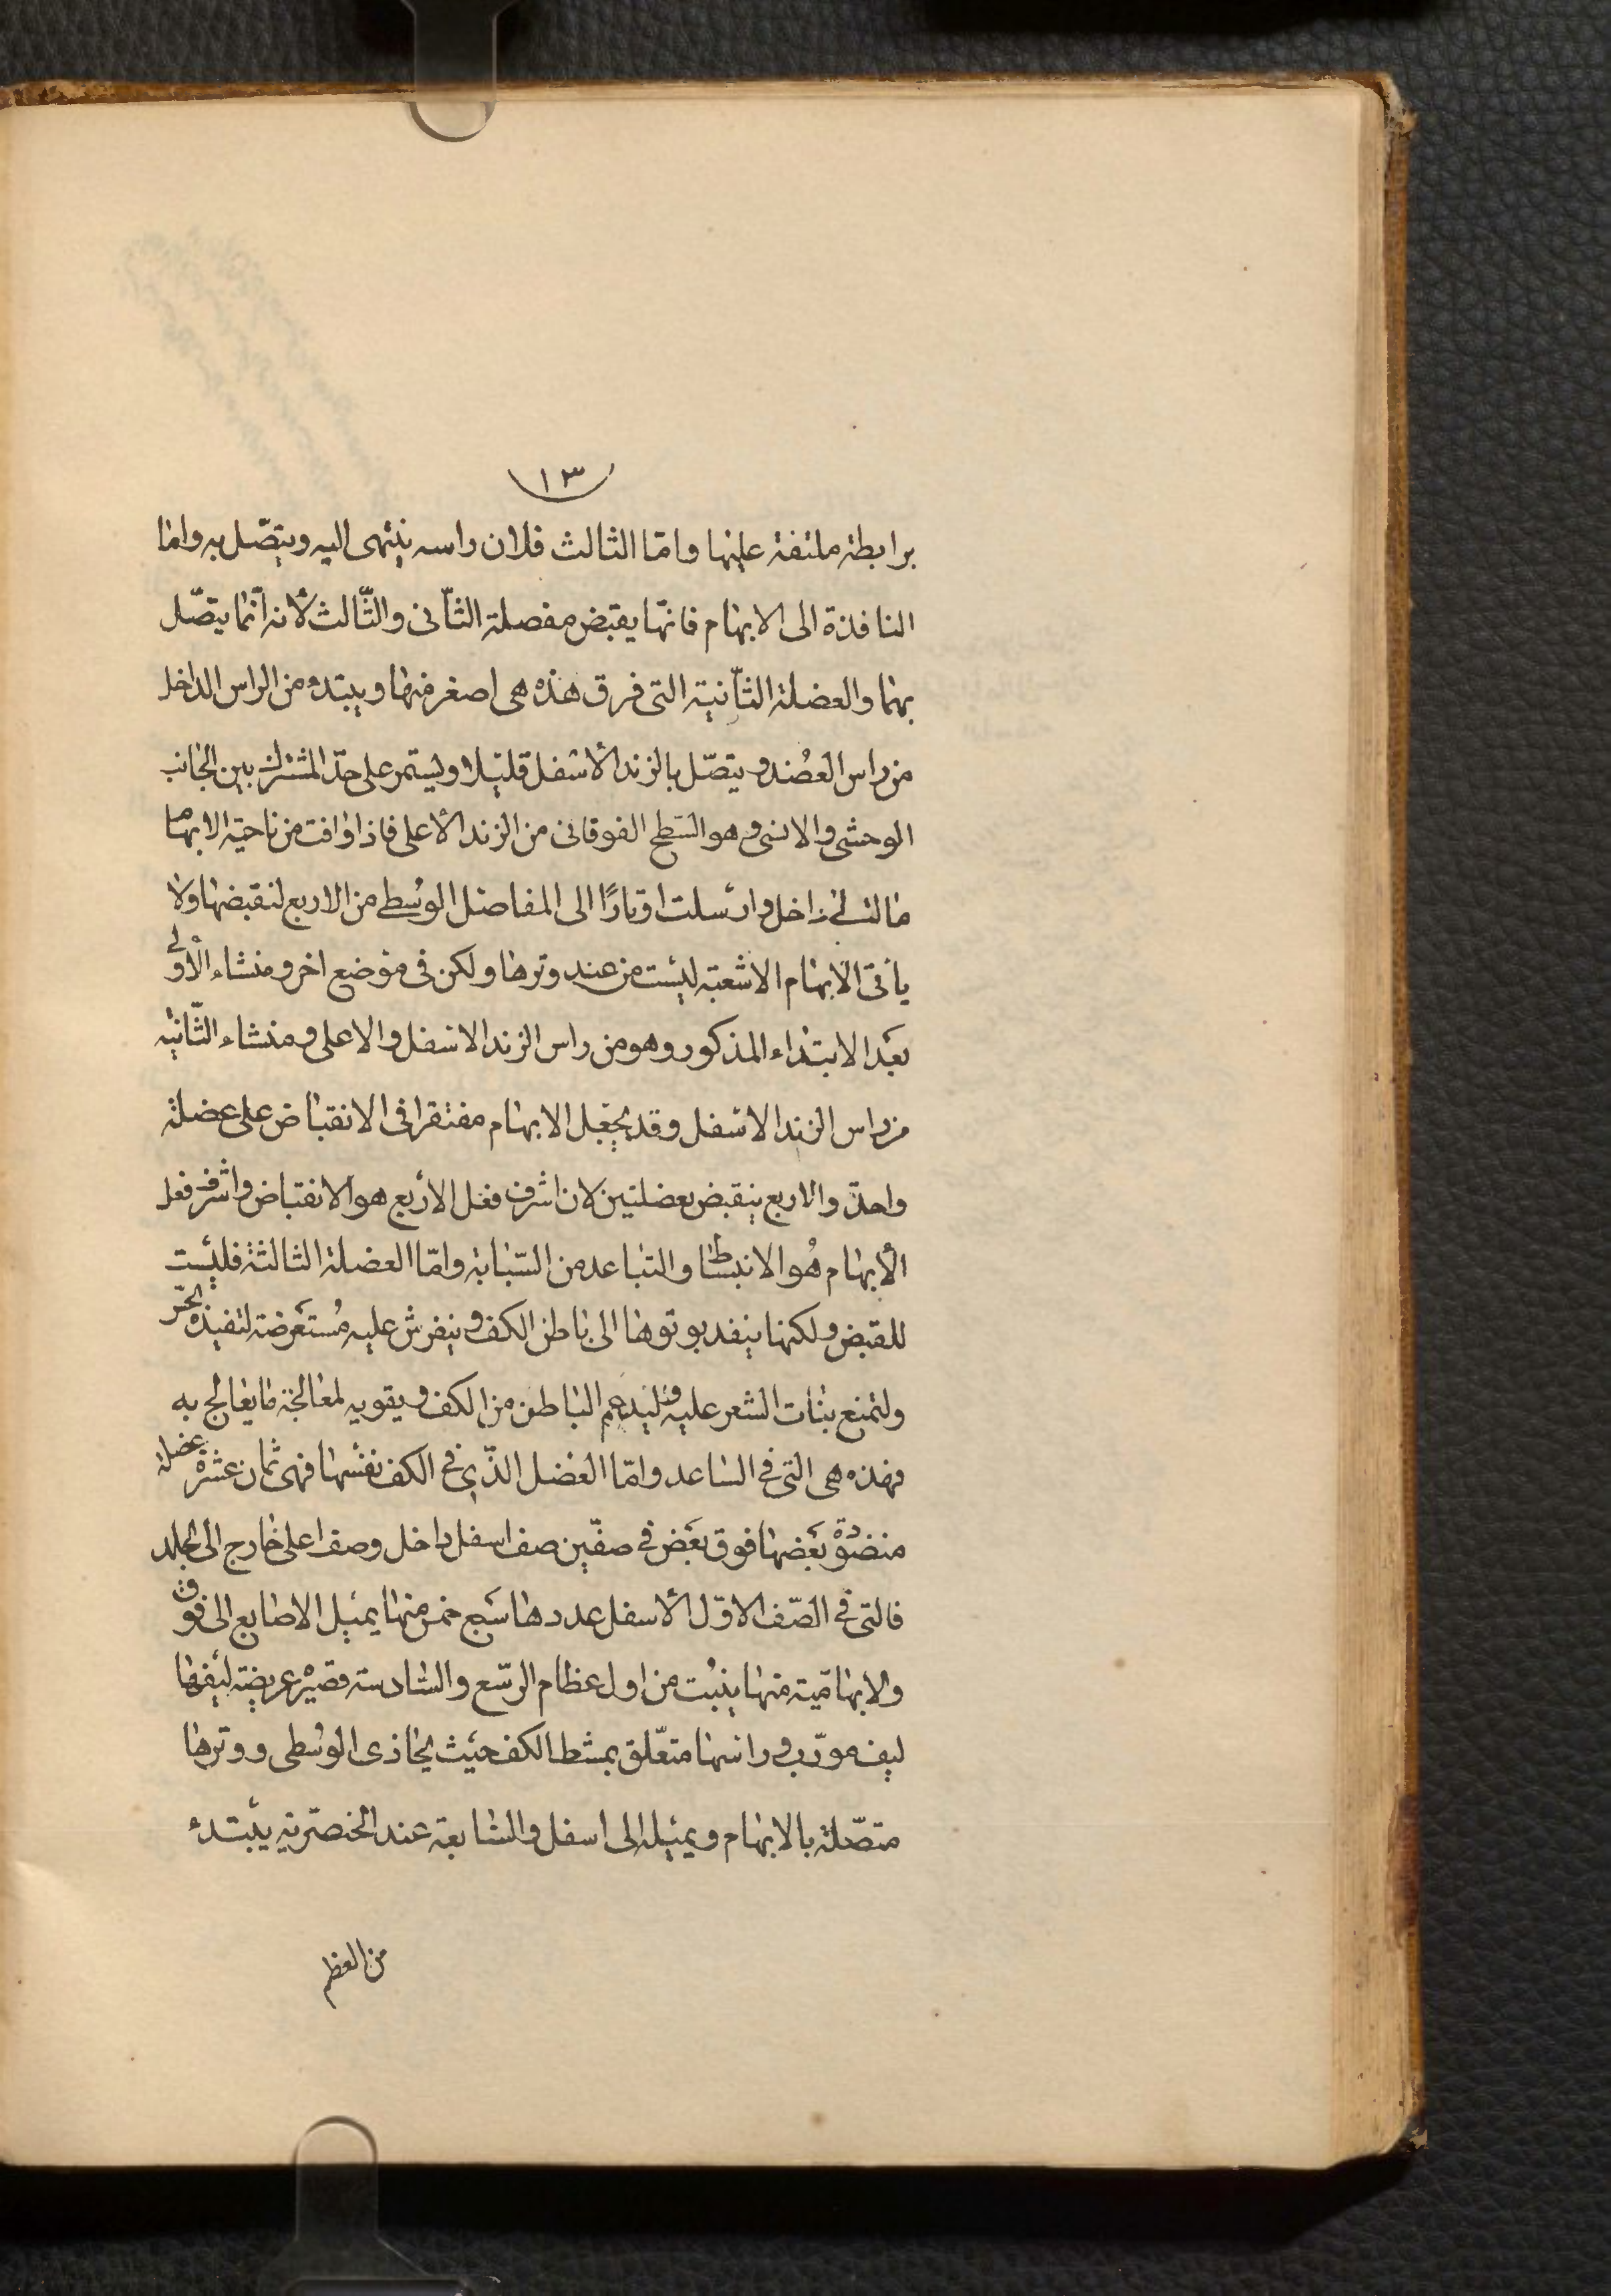 ١٣
برابطة ملتفة علیها وامّا الثالث فلان راسه ینتهی الیه ویتصّل به واما
النافذة الی الابهام فانّها یقبض مفصلة الثآنی والثّالث لأنه انّما یتصّل
بهما والعضلة الثآنیّة التی فرق هذه هی اصغر منها ویبتدء من الراس الداخل
من راس العضُد و یتصّل بالزند الأسفل قلیلا ویستمر علی حدّ المشترک بین الجانب
الوحشی والانسی وهو السّطح الفوقانی من الزند الأعلی فاذا وافت من ناحیّة الابهام
مالت الی داخل وارسلت اوتارًا الی المفاصل الوسُطی من الاربع لنقبضها ولا
یأتی الابهام الا شعبة لیست من عند وترها ولکن فی موضع اخر ومنشاء الأولی
بعَد الابتداء المذکور وهو من راس الزند الاسفل والاعلی ومنشاء الثّانیّه
من راس الزند الاسفل وقد یجعل الابهام مفتقرا فی الانقباض علی عضلة
واحدّ والاربع ینقبض بعضلتین لان اشرف فعل الأربع هو الانقباض واشرف فعل
الأبهام هُو الانبساط والتباعد من السّبابة وامّا العضلة الثالثة فلیست
للقبض ولکنها ینفد بوتوها الی باطن الکف و ینفرش علیه مُستعَرضة لتفیده الحسّ
ولتمنع بنات الشعر علیه ولیدعم الباطن من الکف و یقویه لمعالجة ما یعالج به
فهذه هی التی فی الساعد وامّا العضل الذّی فی الکف نفسها فهی ثمان عشرة عضلة
منضودة بعَضها فوق بعَض فی صفّین صف اسفل داخل وصف اعلی خارج الی الجلد
فالتی فی الصّف الاوّل الأسفل عددها سَبع خمس منها یمیل الاصابع الی فوق
والابهامّیة منها ینبُت من اول عظام الرسّغ والسادسة قصیرة عریضة لیفها
لیف مورّب و راسها متعّلق بمشط الکف حیث یحاذی الوسُطی ووترها
متصّلة بالابهام ویمیله الی اسفل والسابعة عند الخنصرّیة یبتدء
من العظم